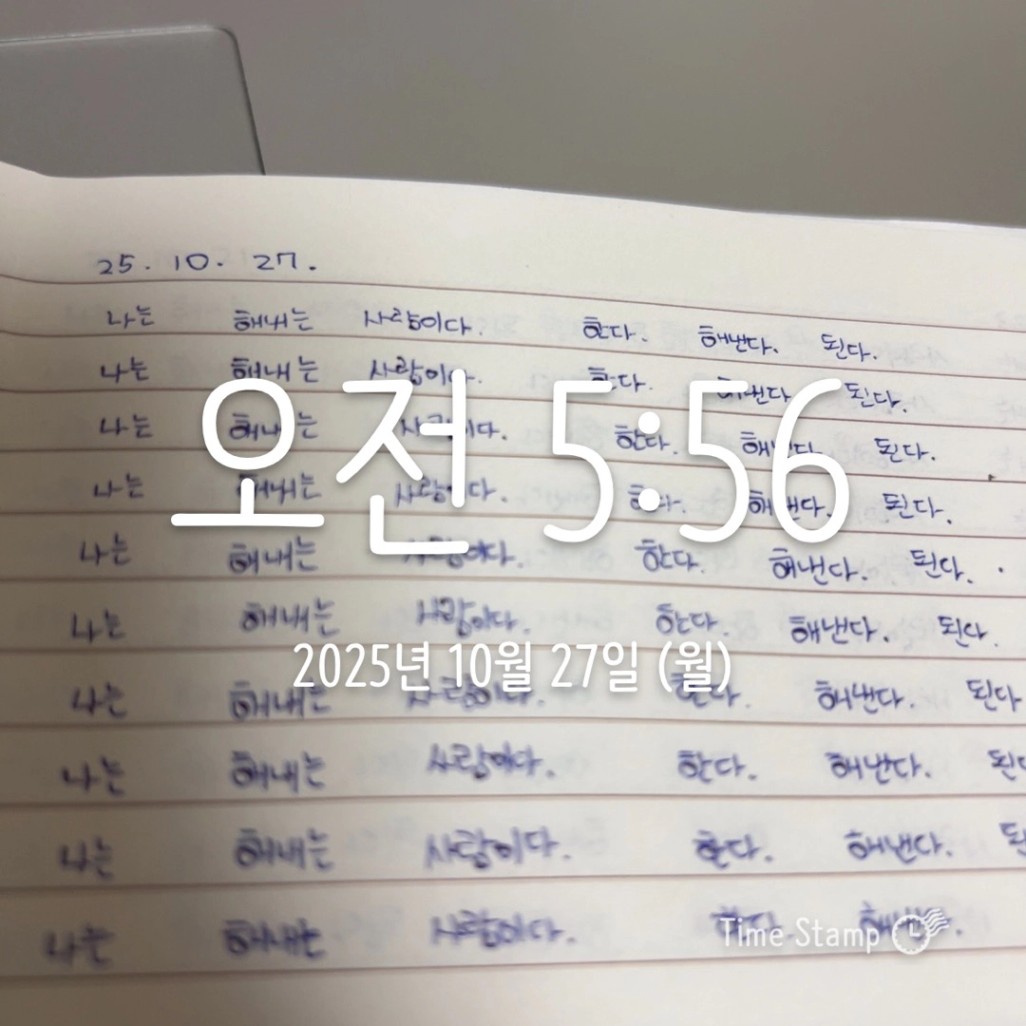 25. 10. 27.
나는 해내는 사람이다. 한다. 해낸다. 된다.
나는 해내는 사람이다. 한다. 해낸다. 된다.
나는 해내는 사람이다. 한다. 해낸다. 된다.
나는 해내는 사람이다. 한다. 해낸다. 된다.
오전 5:56
나는 해내는 사람이다. 한다. 해낸다. 된다.
나는 해내는 사람이다. 한다. 해낸다. 된다.
2025년 10월 27일 (월)
나는 해내는 사람이다. 한다. 해낸다. 된다
나는 해내는 사람이다. 한다. 해낸다.
나는 해내는 사람이다. 한다. 해낸다.
나는 해내는 사람이다. 한다. 해낸다.
Time Stamp